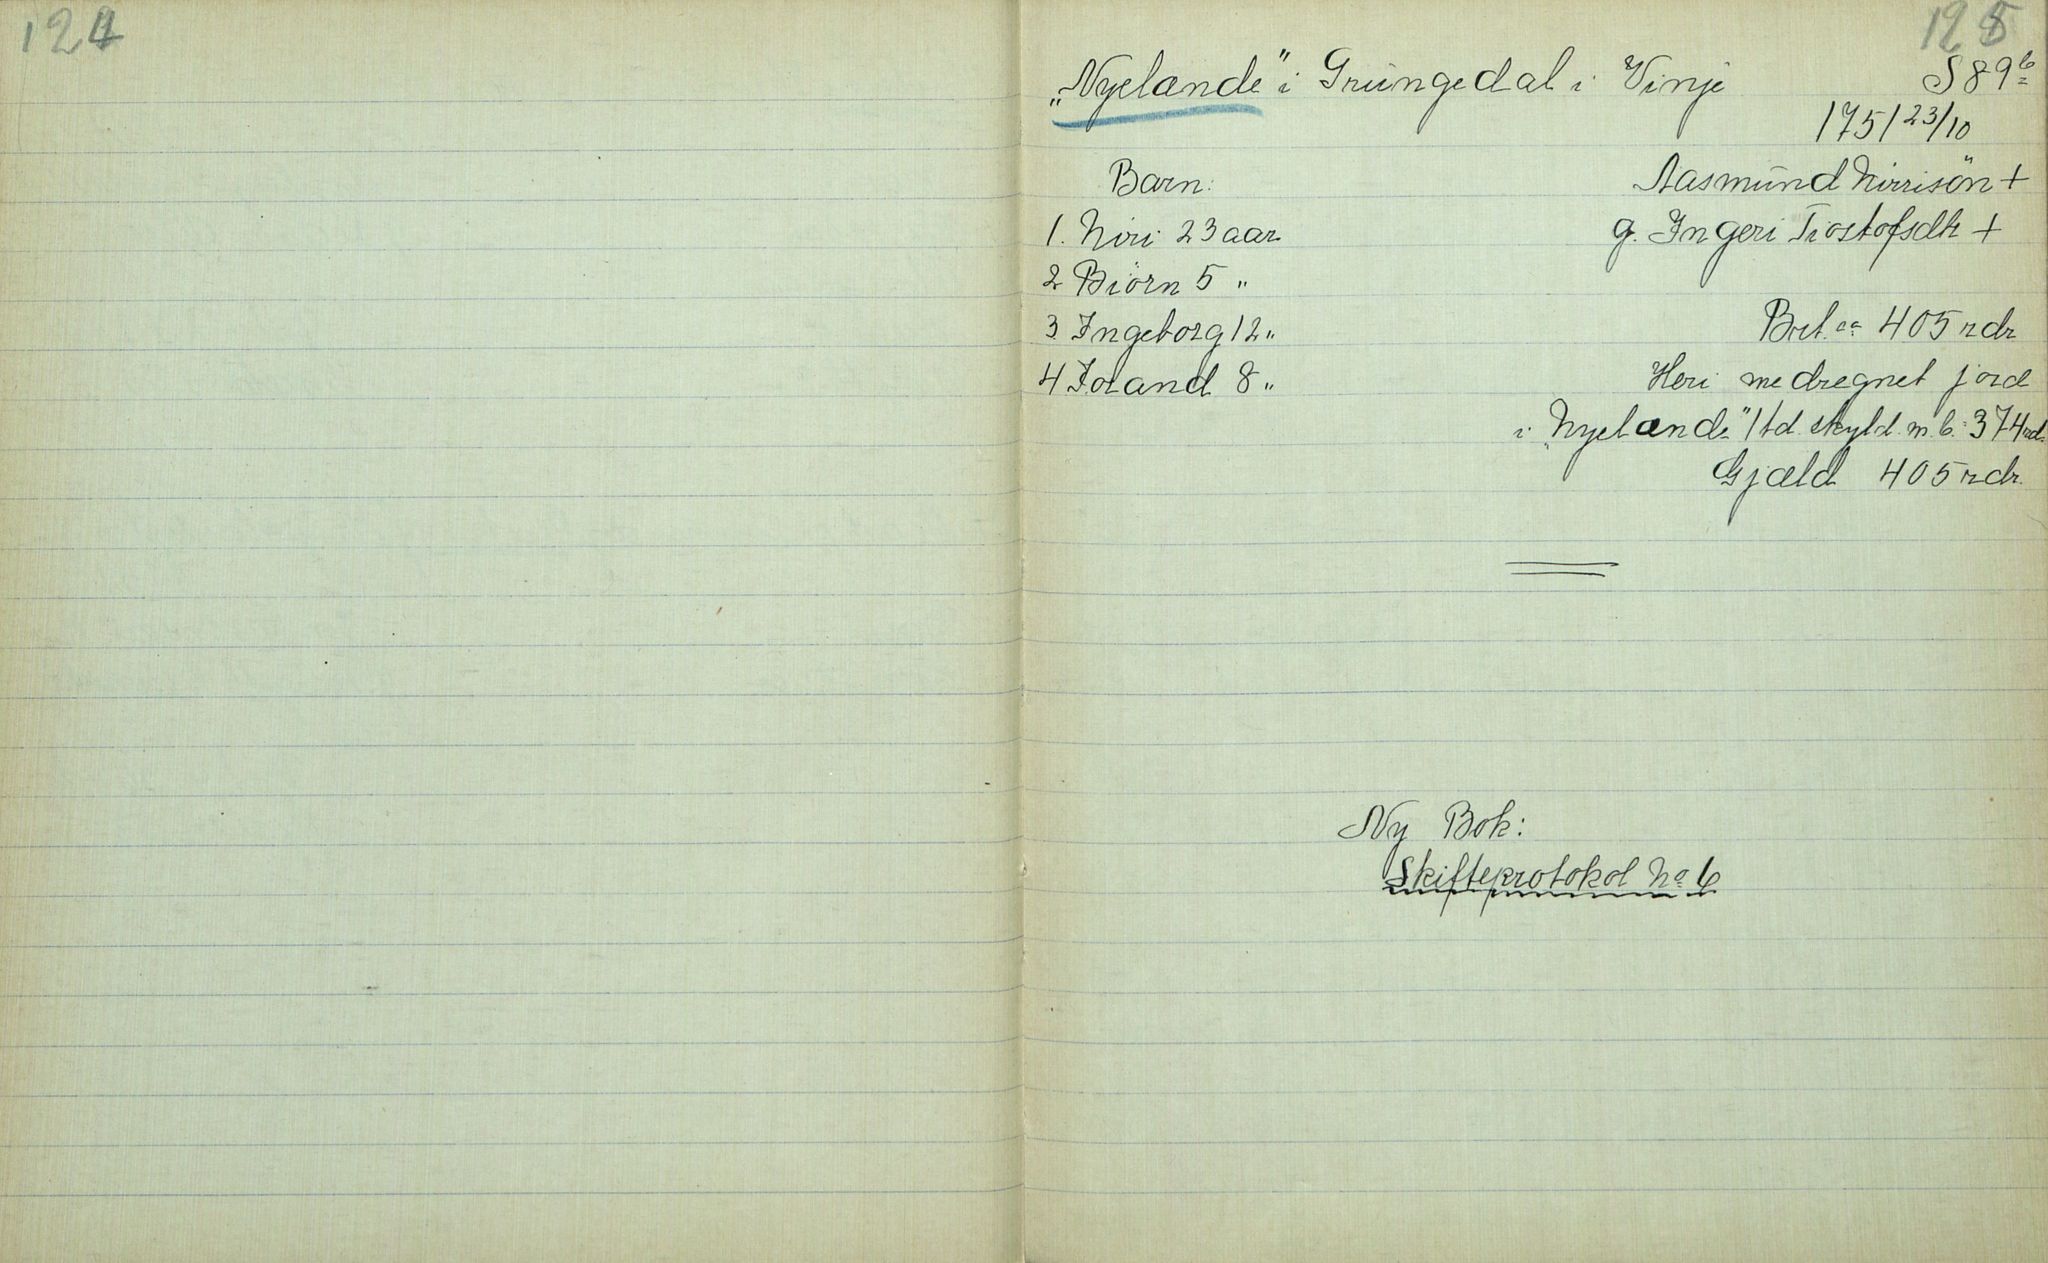 124
125
„Nyelande" i Grungedal i Vinje S 89 b
1751 23/10
Barn: Aasmund Nirrisön +
1. Niri 23 aar g. Ingeri Tiostofsdtr +
2 Biörn 5 "
3 Ingeborg 12 " Brt. ca 405 rdr
4 Jorand 8 " Heri medregnet jord
i „Nyelande" 1 td. skyld m. b. 374 rd.
Gjæld 405 rdr.
Ny Bok:
Skifteprotokol No 6